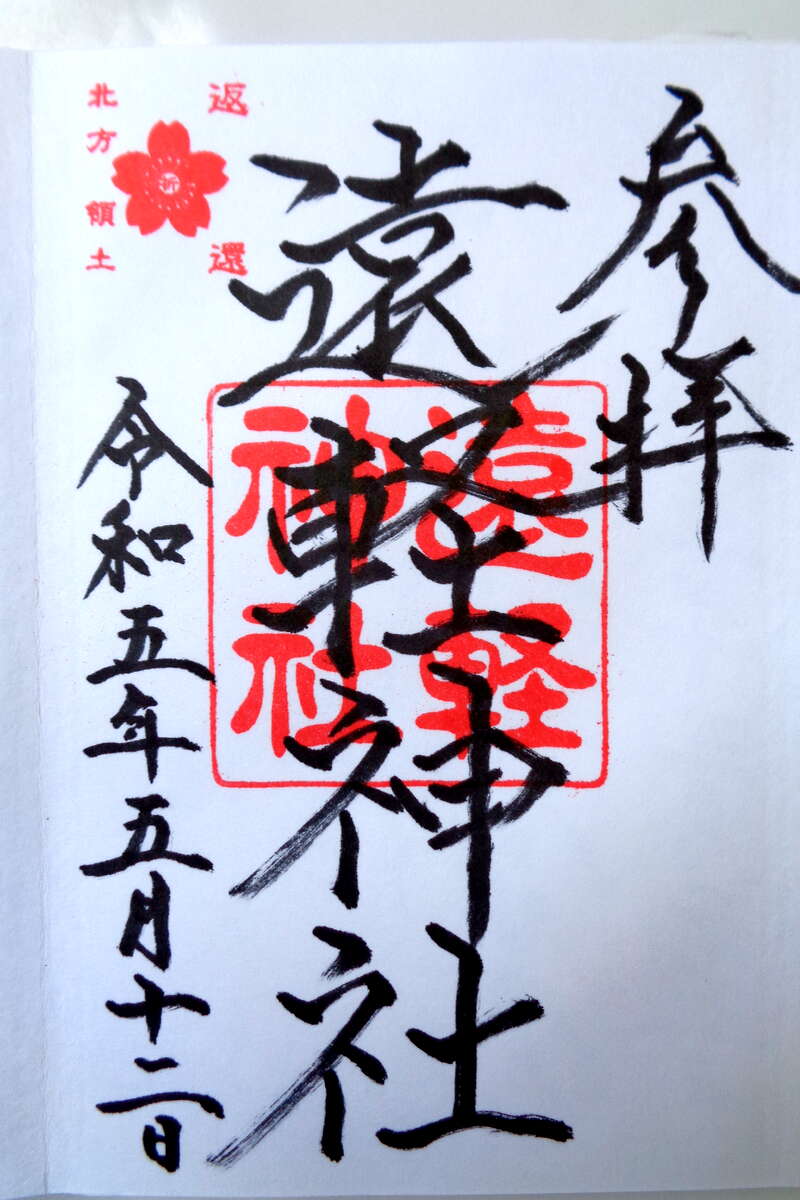 参拝
遠軽神社
遠軽
神社
返還
祈
北方領土
令和五年五月十二日